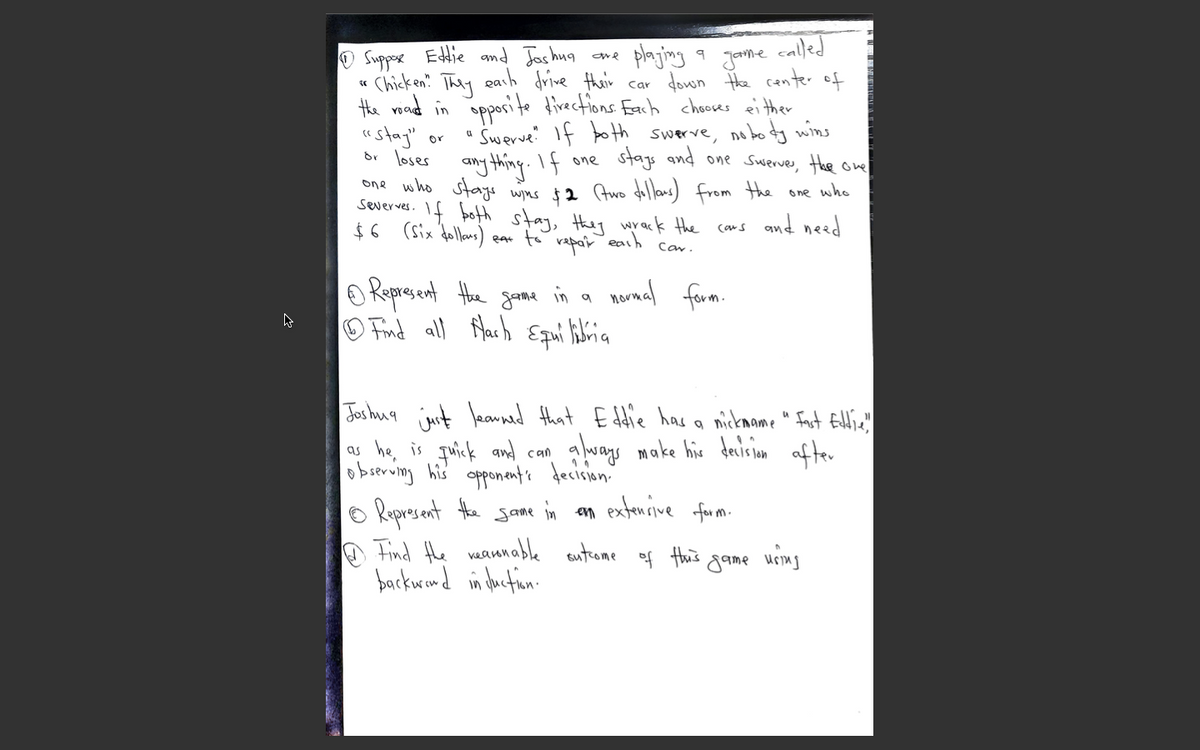 ① Suppose Eddie and Joshua are playing a game called
"Chicken". They each drive their car down the center of
the road in opposite directions. Each chooses either
"stay" or "Swerve". If both swerve, nobody wins
or loses anything. If one stays and one swerves, the one
one who stays wins $2 (two dollars) from the one who
severves. If both stay, they wrack the cars and need
$6 (six dollars) to repair each car.
ⓐ Represent the game in a normal form.
ⓑ Find all Nash Equilibria
Joshua just learned that Eddie has a nickname "Fast Eddie",
as he, is quick and can always make his decision after
observing his opponent's decision.
ⓒ Represent the game in an extensive form.
ⓓ Find the reasonable outcome of this game using
backward induction.